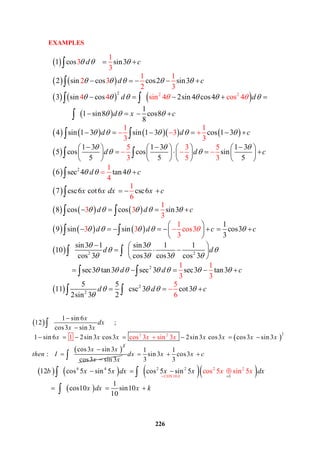 EXAMPLES
(1) ∫cos3θ dθ = 1/3 sin3θ + c
(2) ∫(sin2θ − cos3θ) dθ = −1/2 cos2θ − 1/3 sin3θ + c
(3) ∫(sin4θ − cos4θ)² dθ = ∫(sin²4θ − 2sin4θ cos4θ + cos²4θ) dθ =
∫(1 − sin8θ) dθ = x − 1/8 cos8θ + c
(4) ∫sin(1−3θ) dθ = −1/3 ∫sin(1−3θ)(−3) dθ = +1/3 cos(1−3θ) + c
(5) ∫cos((1−3θ)/5) dθ = −5/3 ∫cos((1−3θ)/5)·(−3/5) dθ = −5/3 sin((1−3θ)/5) + c
(6) ∫sec²4θ dθ = 1/4 tan4θ + c
(7) ∫csc6x cot6x dx = −1/6 csc6x + c
(8) ∫cos(−3θ) dθ = ∫cos(3θ) dθ = 1/3 sin3θ + c
(9) ∫sin(−3θ) dθ = −∫sin(3θ) dθ = −(−1/3 cos3θ) + c = 1/3 cos3θ + c
(10) ∫(sin3θ − 1)/cos²3θ dθ = ∫(sin3θ/cos3θ · 1/cos3θ − 1/cos²3θ) dθ
= ∫sec3θ tan3θ dθ − ∫sec²3θ dθ = 1/3 sec3θ − 1/3 tan3θ + c
(11) ∫5/(2sin²3θ) dθ = 5/2 ∫csc²3θ dθ = −5/6 cot3θ + c
(12) ∫(1 − sin6x)/(cos3x − sin3x) dx ;
1 − sin6x = 1 − 2sin3x cos3x = cos²3x + sin²3x − 2sin3x cos3x = (cos3x − sin3x)²
then : I = ∫(cos3x − sin3x)²/(cos3x − sin3x) dx = 1/3 sin3x + 1/3 cos3x + c
(12b) ∫(cos⁴5x − sin⁴5x) dx = ∫(cos²5x − sin²5x)(cos²5x ⊕ sin²5x) dx
= ∫cos(10x) dx = 1/10 sin10x + k
226